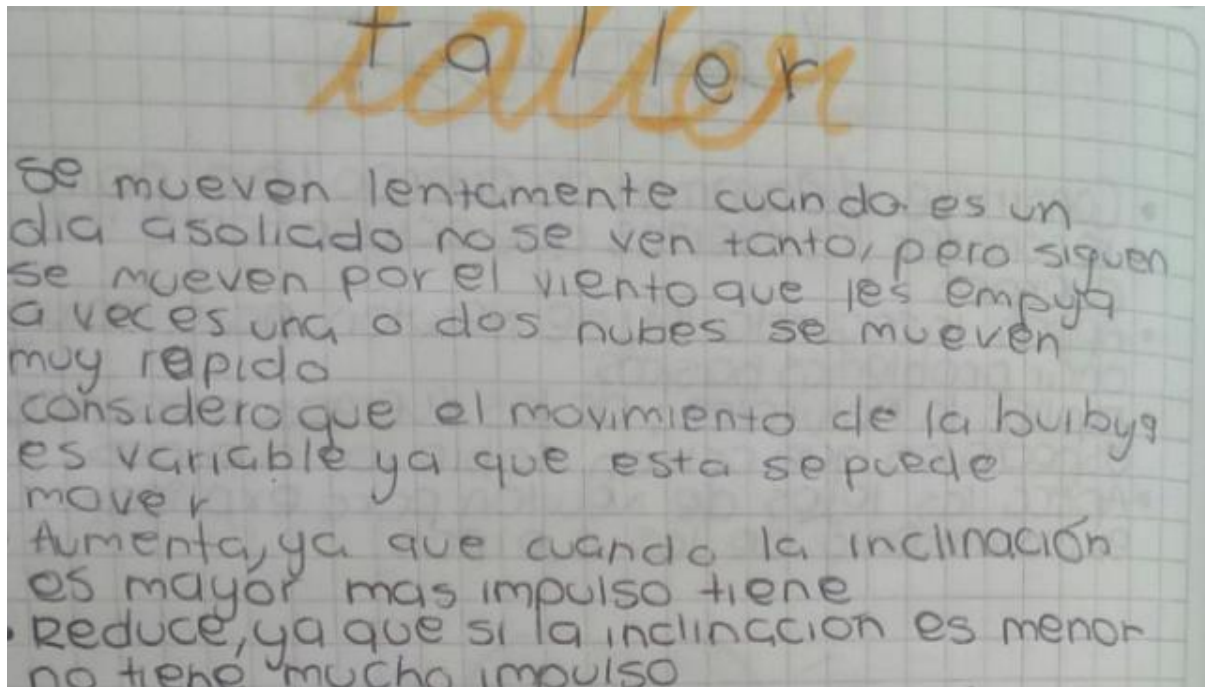 taller
se mueven lentamente cuando es un
dia asoliado no se ven tanto, pero siguen
se mueven por el viento que les empuya
a veces una o dos nubes se mueven
muy rapido
considero que el movimiento de la burbuya
es variable ya que esta se puede
mover
Aumenta, ya que cuando la inclinación
es mayor mas impulso tiene
• Reduce, ya que si la inclinacion es menor
no tiene mucho impulso